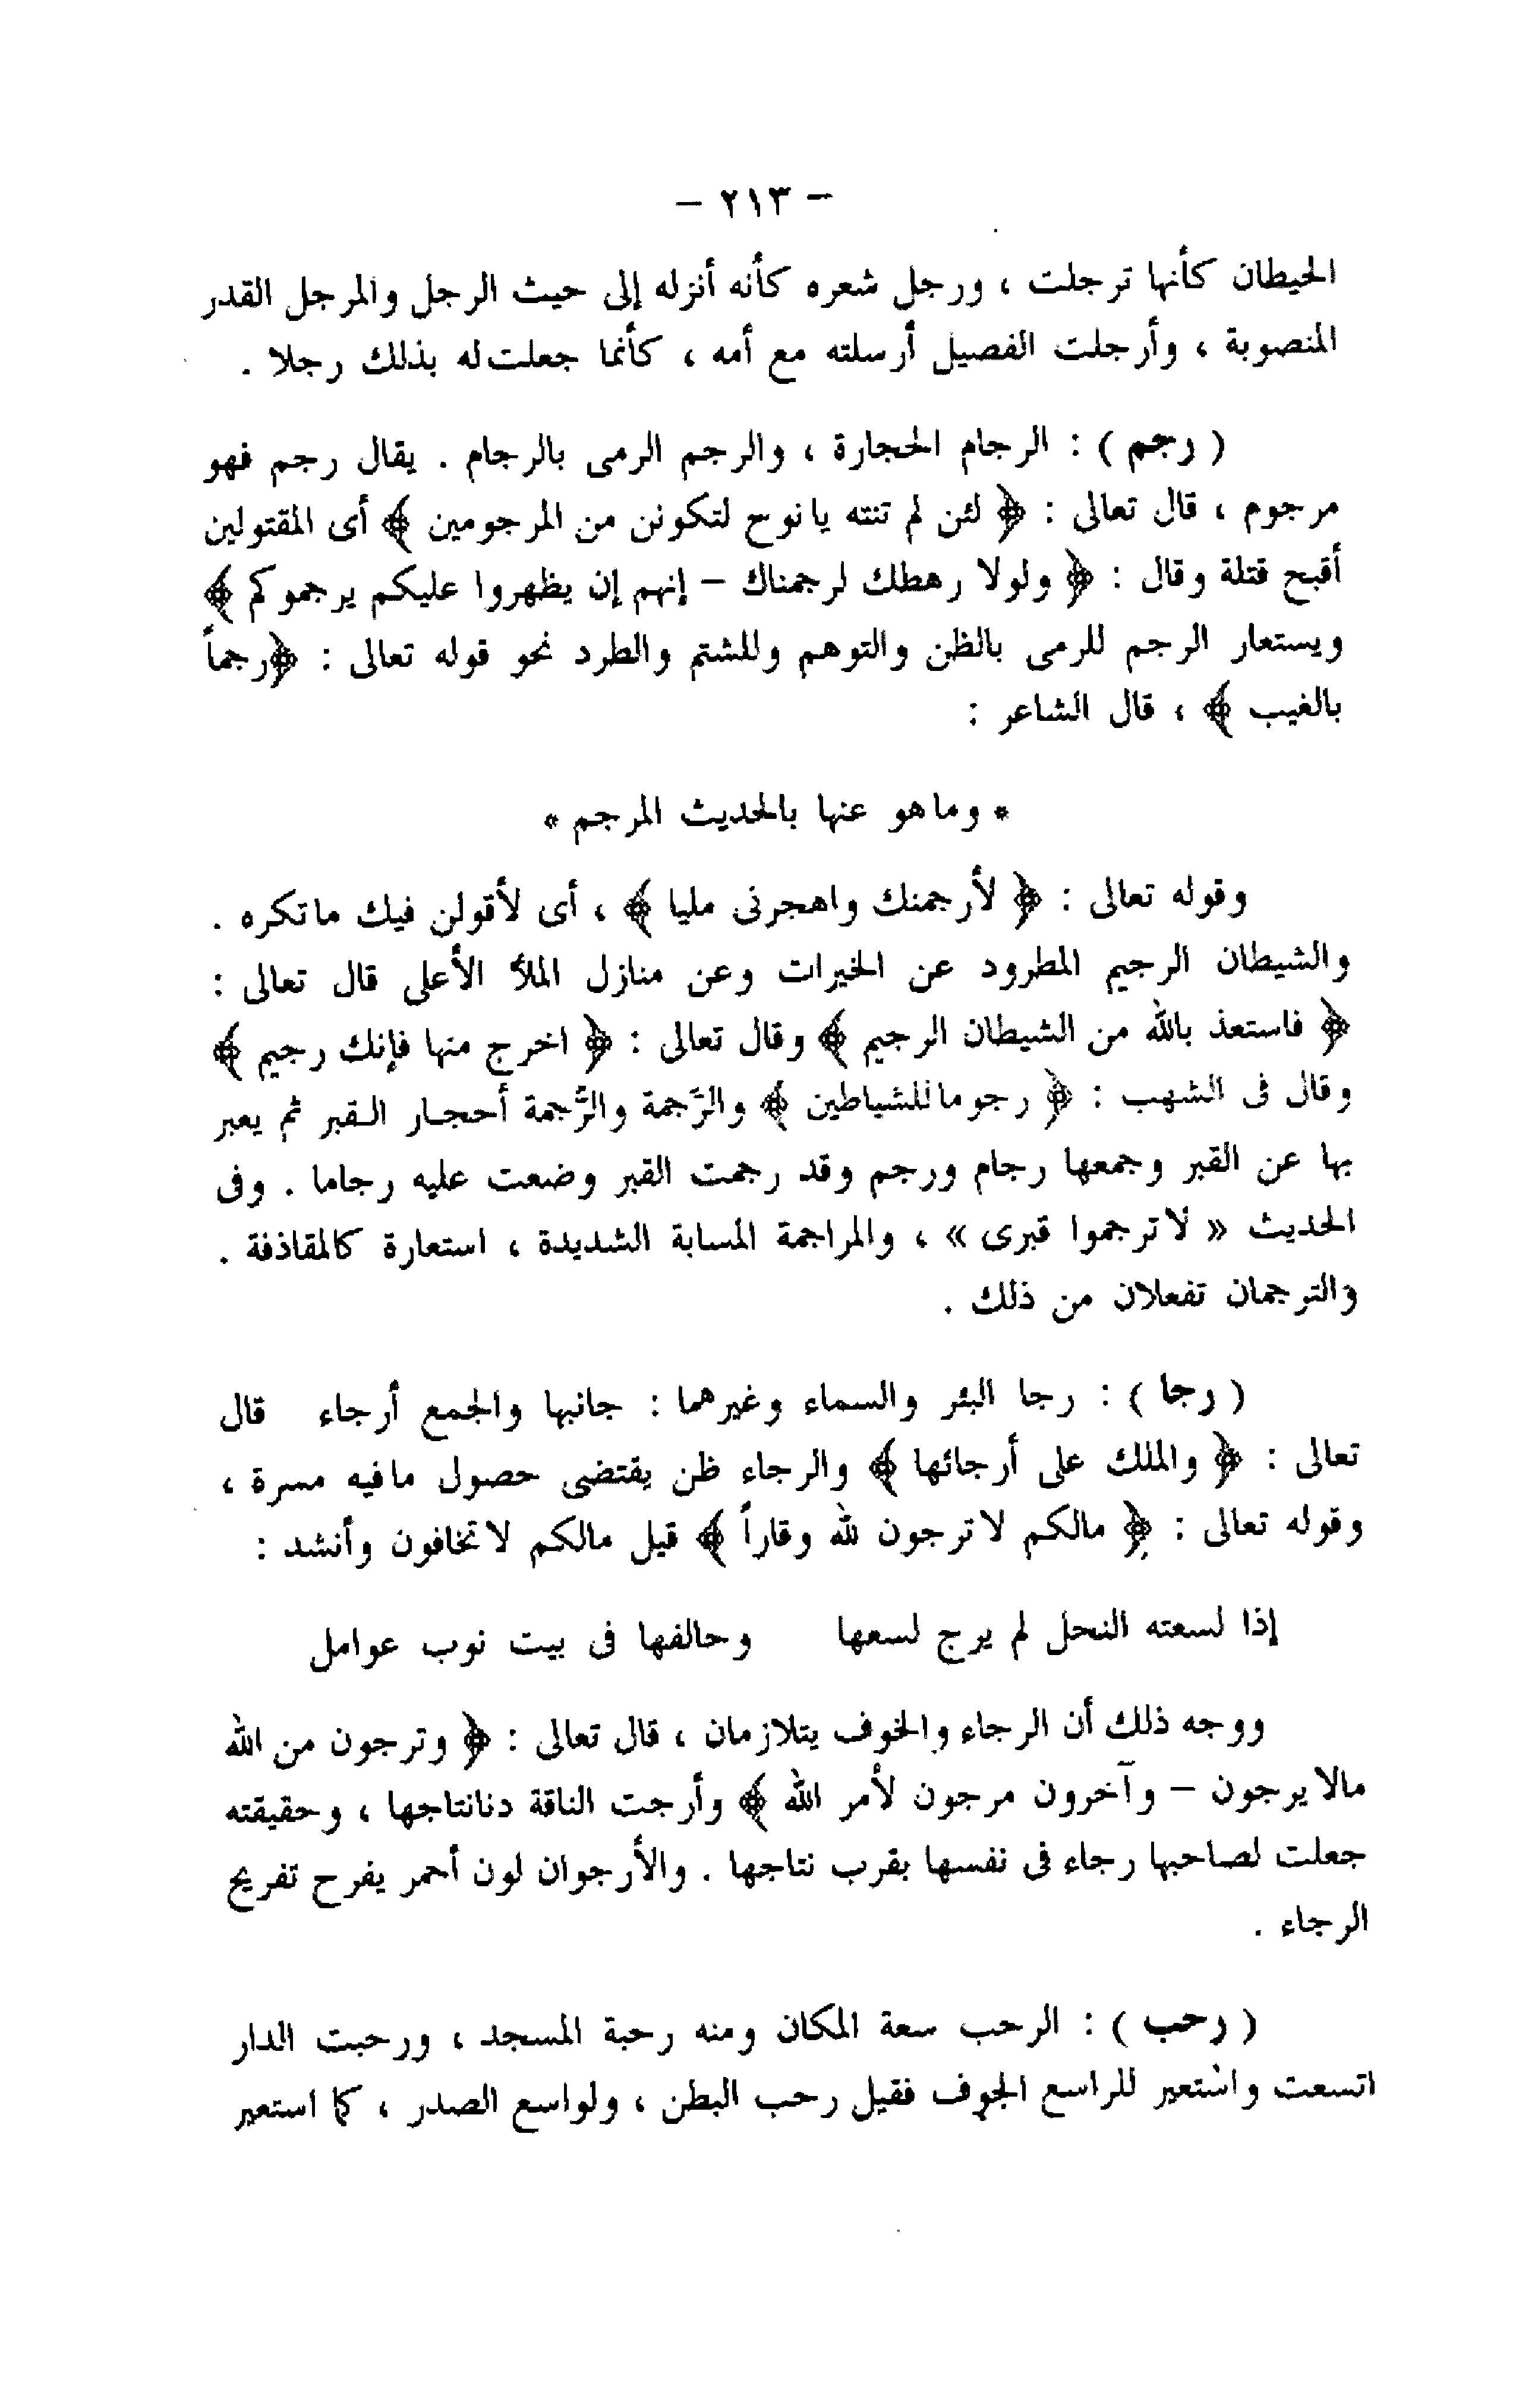 — ٢١٣ —
الحيطان كأنها ترجلت ، ورجل شعره كأنه أنزله إلى حيث الرجل والمرجل القدر
المنصوبة ، وأرجلت الفصيل أرسلته مع أمه ، كأنما جعلت له بذلك رجلا .
( رجم ) : الرجام الحجارة ، والرجم الرمى بالرجام . يقال رجم فهو
مرجوم ، قال تعالى : ﴿ لئن لم تنته يا نوح لتكونن من المرجومين ﴾ أى المقتولين
أقبح قتلة وقال : ﴿ ولولا رهطك لرجمناك — إنهم إن يظهروا عليكم يرجموكم ﴾
ويستعار الرجم للرمى بالظن والتوهم وللشتم والطرد نحو قوله تعالى : ﴿رجماً
بالغيب ﴾ ، قال الشاعر :
* وما هو عنها بالحديث المرجم *
وقوله تعالى : ﴿ لأرجمنك واهجرنى مليا ﴾ ، أى لأقولن فيك ما تكره .
والشيطان الرجيم المطرود عن الخيرات وعن منازل الملأ الأعلى قال تعالى :
﴿ فاستعذ بالله من الشيطان الرجيم ﴾ وقال تعالى : ﴿ اخرج منها فإنك رجيم ﴾
وقال فى الشهب : ﴿ رجوما للشياطين ﴾ والرَّجمة والرُّجمة أحجار القبر ثم يعبر
بها عن القبر وجمعها رجام ورجم وقد رجمت القبر وضعت عليه رجاما . وفى
الحديث « لا ترجموا قبرى » ، والمراجمة المسابة الشديدة ، استعارة كالمقاذفة .
والترجمان تفعلان من ذلك .
( رجا ) : رجا البئر والسماء وغيرهما : جانبها والجمع أرجاء قال
تعالى : ﴿ والملك على أرجائها ﴾ والرجاء ظن يقتضى حصول ما فيه مسرة ،
وقوله تعالى : ﴿ مالكم لا ترجون لله وقاراً ﴾ قيل مالكم لا تخافون وأنشد :
إذا لسعته النحل لم يرج لسعها وحالفها فى بيت نوب عوامل
ووجه ذلك أن الرجاء والخوف يتلازمان ، قال تعالى : ﴿ وترجون من الله
مالا يرجون — وآخرون مرجون لأمر الله ﴾ وأرجت الناقة دنا نتاجها ، وحقيقته
جعلت لصاحبها رجاء فى نفسها بقرب نتاجها . والأرجوان لون أحمر يفرح تفريح
الرجاء .
( رحب ) : الرحب سعة المكان ومنه رحبة المسجد ، ورحبت الدار
اتسعت واستعير للراسع الجوف فقيل رحب البطن ، ولواسع الصدر ، كما استعير